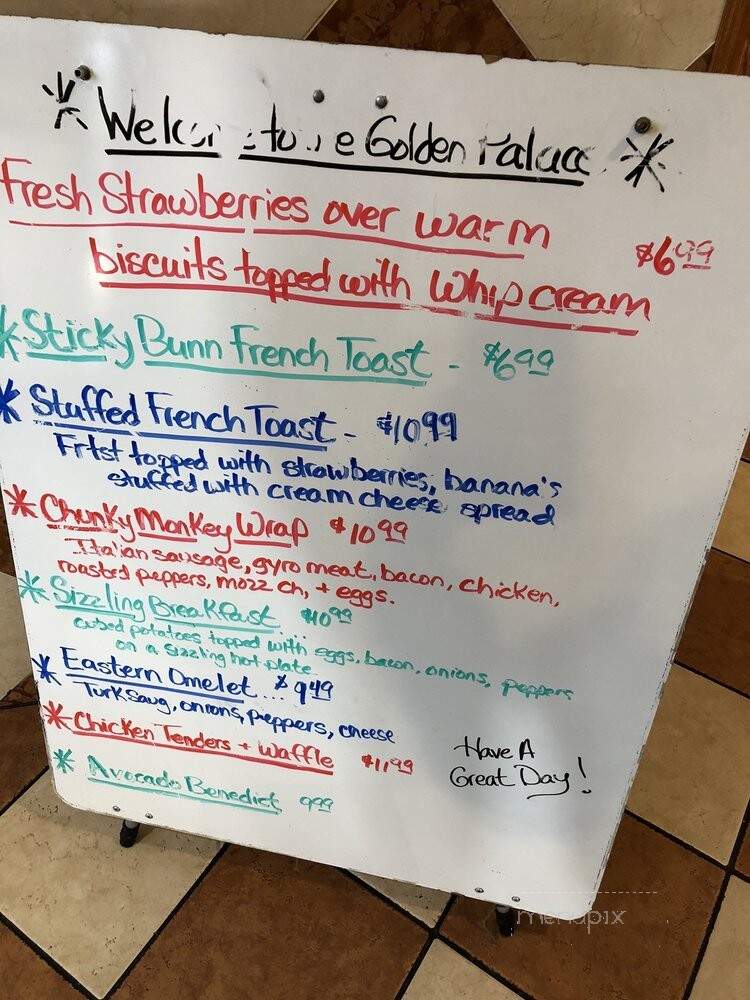 Golden Palace
Fresh Strawberries over warm
$6.99
biscuits topped with Whip cream
Sticky Bunn French Toast - $6.99
Stuffed French Toast - $10.99
Frtst topped with strawberries, banana's
stuffed with cream cheese spread
Chunky Monkey Wrap $10.99
Italian sausage, gyro meat, bacon, chicken,
roasted peppers, mozz ch, + eggs.
Sizzling Breakfast $10.99
cubed potatoes topped with eggs, bacon, onions, peppers
on a sizzling hot plate
Eastern Omelet... $9.49
Turk saug, onions, peppers, cheese
Chicken Tenders + Waffle $11.99
Avocado Benedict 9.99
Have A
Great Day!
menupix